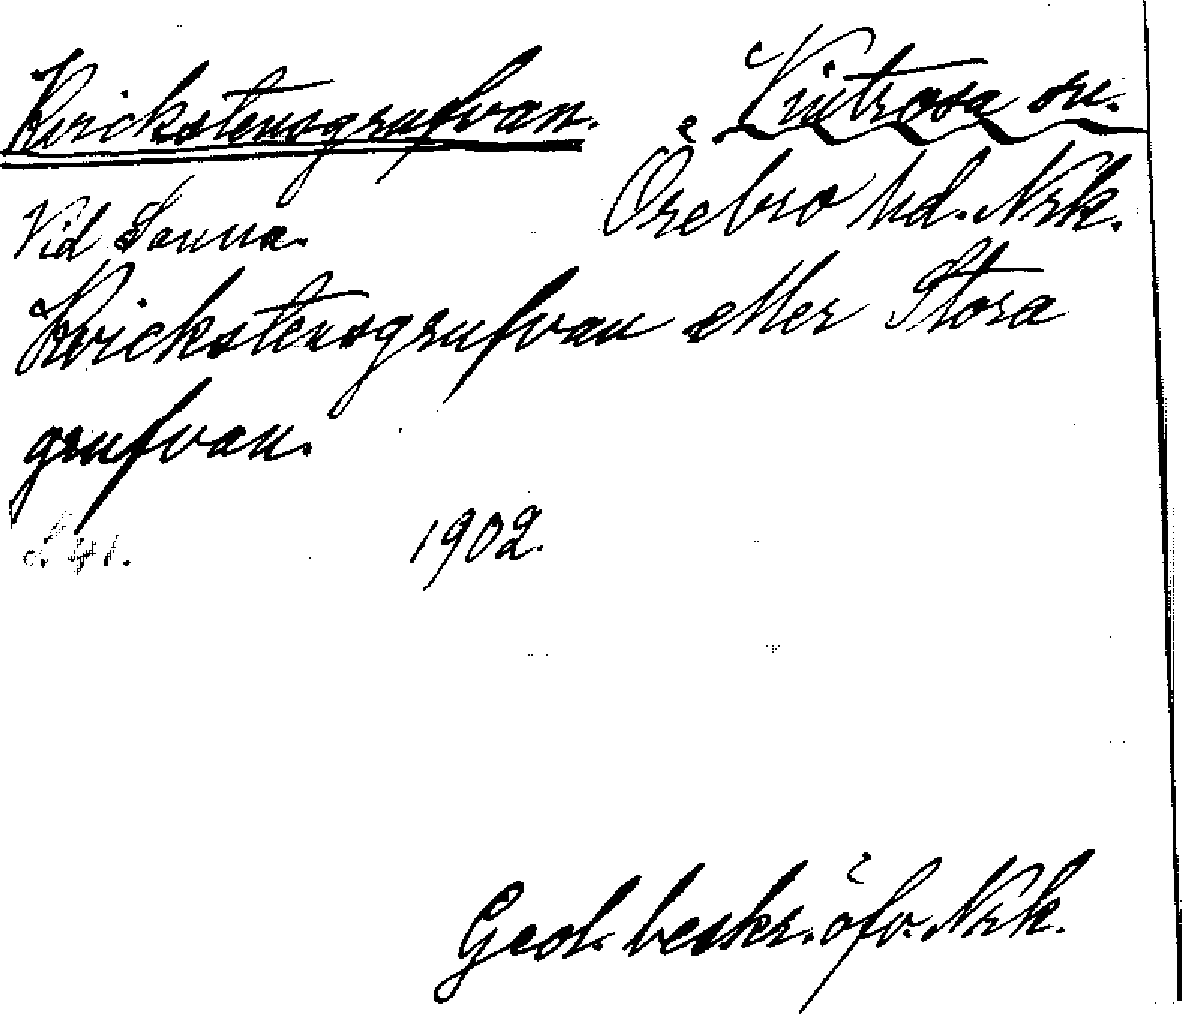 Kvickstensgrufvan. Vintrosa sn.
Vid Sanna. Örebro hd. Nrk.
Kvickstensgrufvan eller Stora
grufvan.
S. 41. 1902.
Geol. beskr. öfv. Nrk.